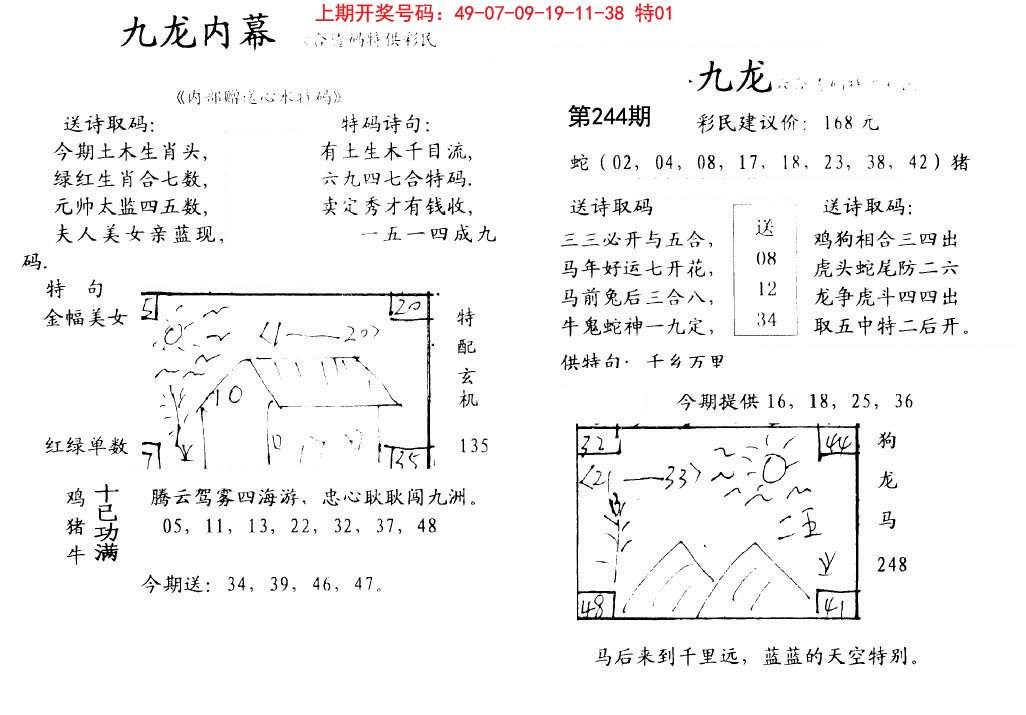 上期开奖号码：49-07-09-19-11-38 特01
九龙内幕
码特供彩民
《内部赠送心水特码》
送诗取码：
今期土木生肖头，
绿红生肖合七数，
元帅太监四五数，
夫人美女亲蓝现，
特码诗句：
有土生木千目流，
六九四七合特码.
卖定秀才有钱收，
一五一四成九
码.
特 句
金幅美女
红绿单数
5
20
<1——20>
10
0
7
35
特
配
玄
机
135
鸡
猪
牛
十已功满
腾云驾雾四海游，忠心耿耿闯九洲。
05，11，13，22，32，37，48
今期送：34，39，46，47。
九龙
第244期
彩民建议价：168元
蛇（02，04，08，17，18，23，38，42）猪
送诗取码
三三必开与五合，
马年好运七开花，
马前兔后三合八，
牛鬼蛇神一九定，
送
08
12
34
送诗取码：
鸡狗相合三四出
虎头蛇尾防二六
龙争虎斗四四出
取五中特二后开。
供特句：千乡万里
今期提供16，18，25，36
32
44
<21——33>
二五
48
41
狗
龙
马
248
马后来到千里远，蓝蓝的天空特别。